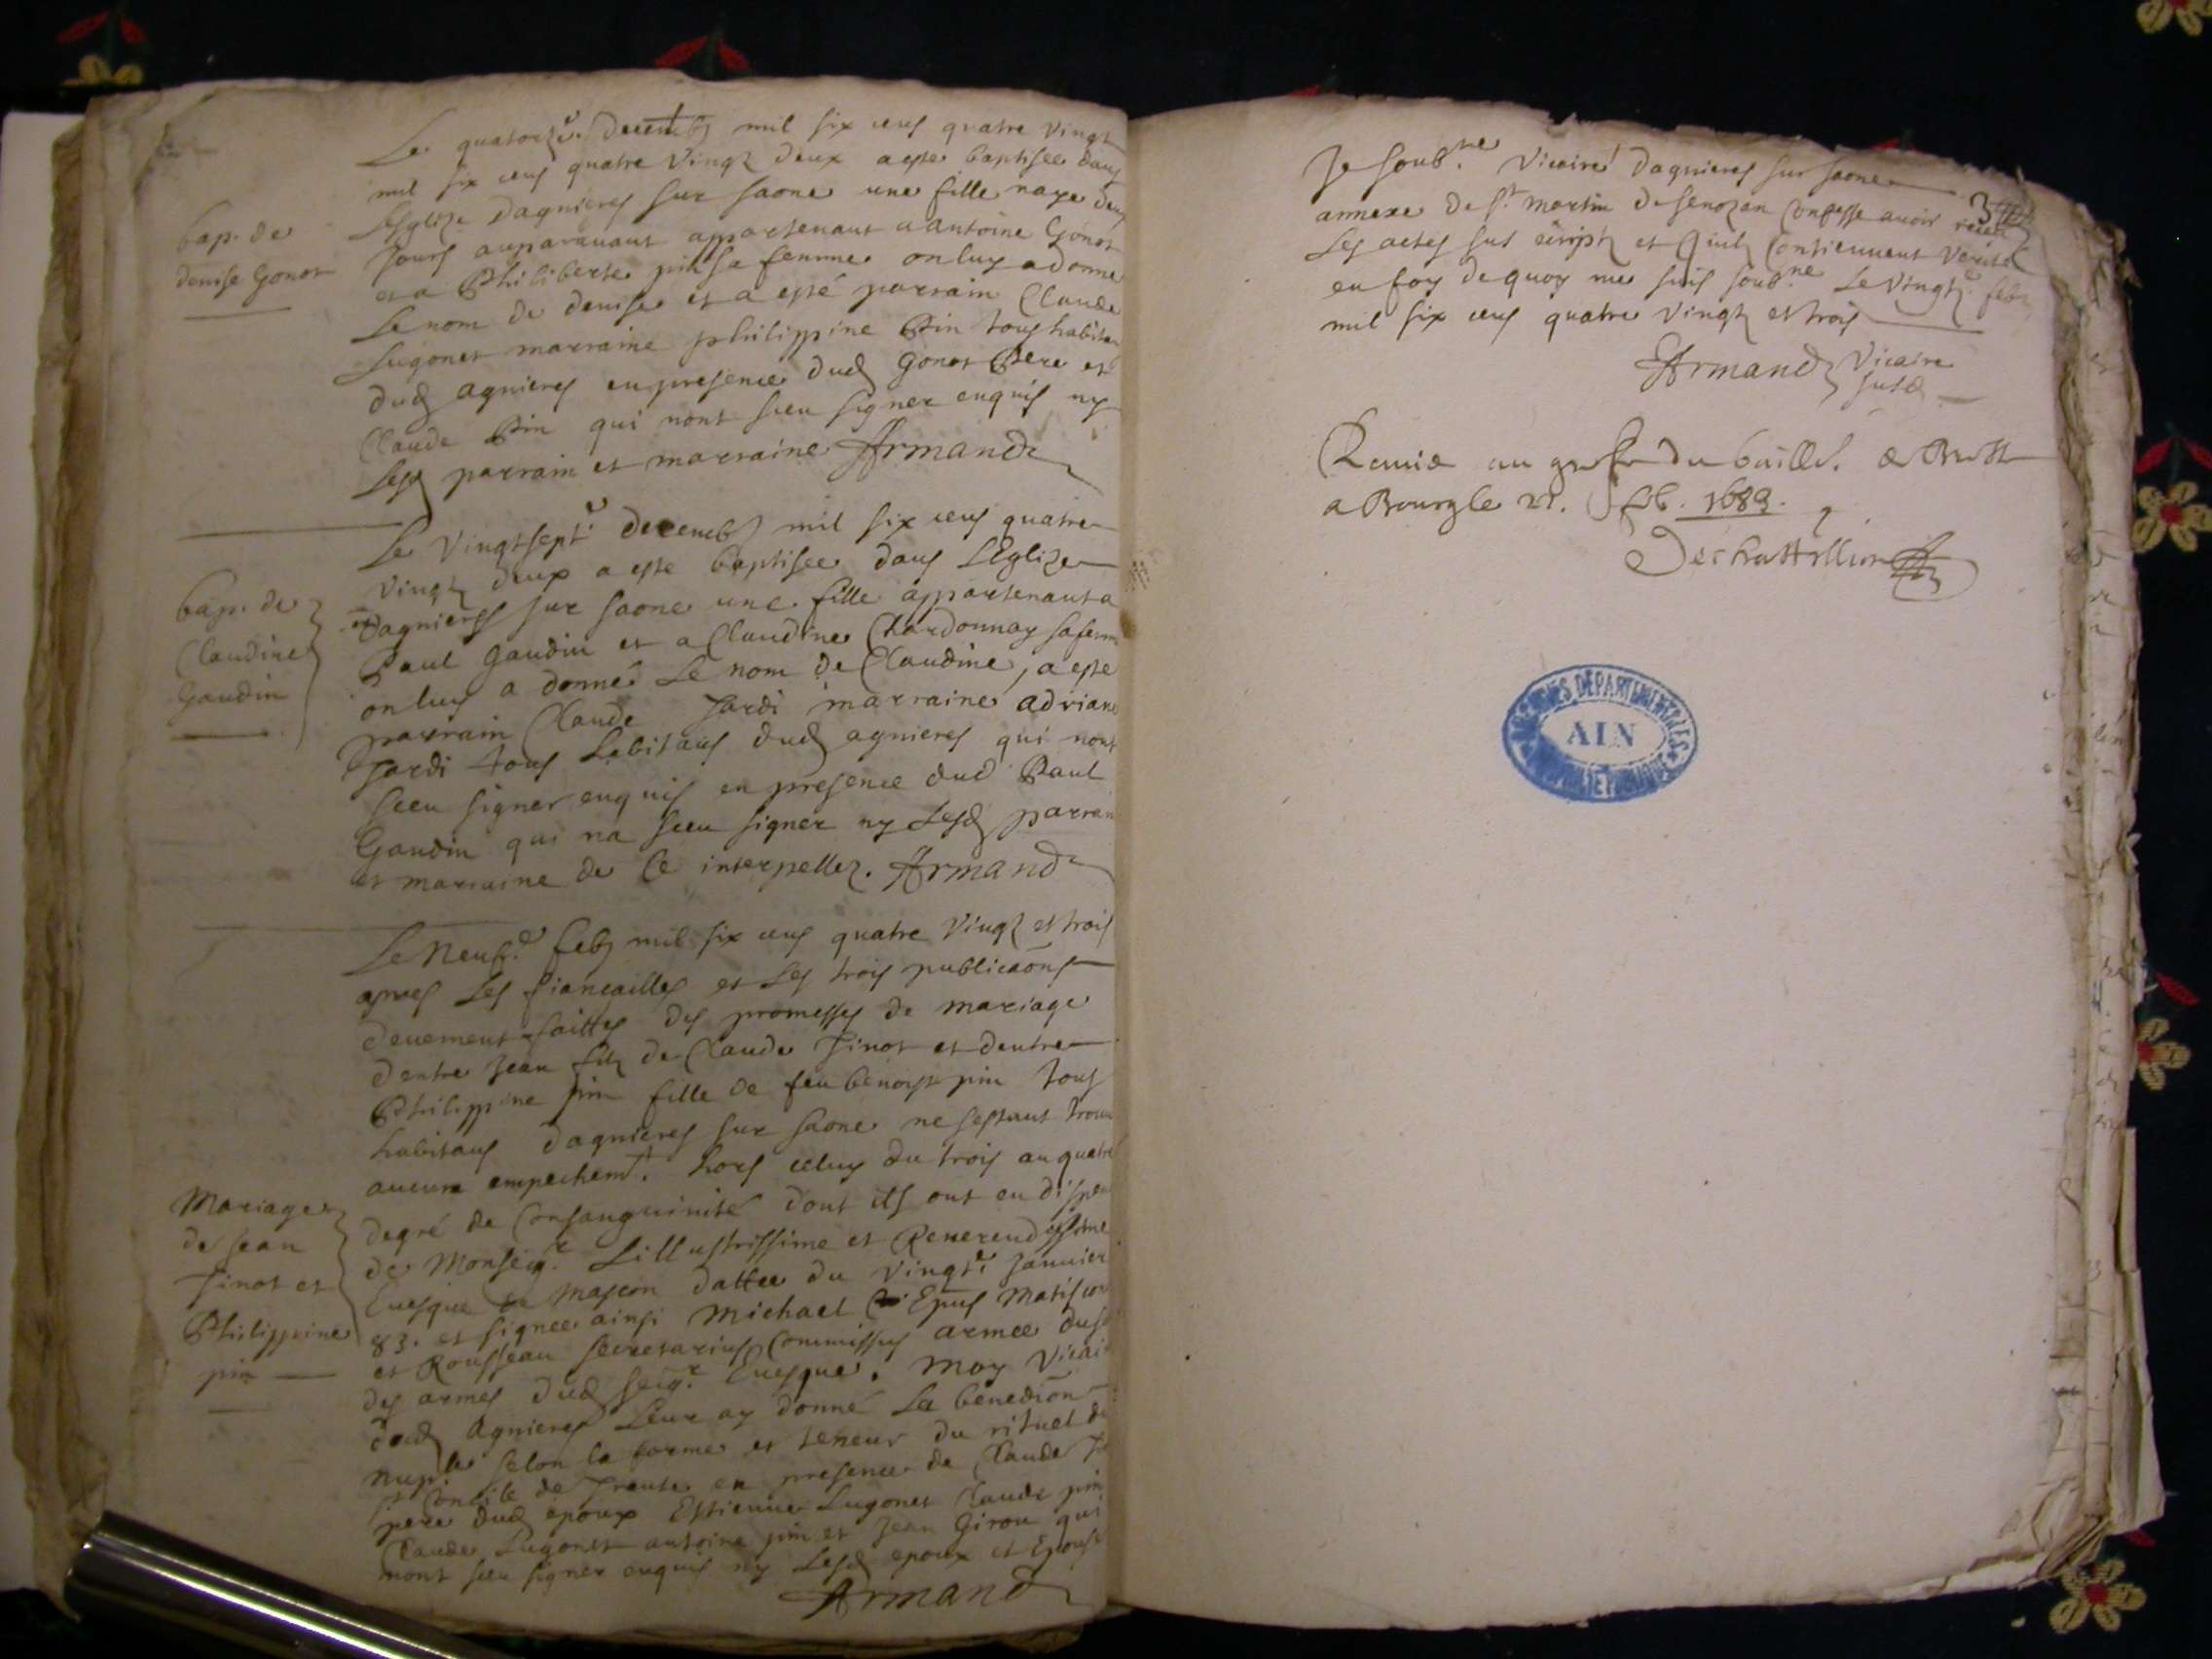 Le quatorz.e Decemb. mil six cens quatre Vingt
mil six cens quatre Vingtz deux a este baptisee dans
Leglize Dagnieres sur saone une fille naye deux
Jours auparavant appartenant a antoine Gonot
et a Philiberte pin sa femme on luy a donne
Le nom de denise et a esté parrain Claude
Lugonet marraine philippine Pin tous habitans
dud agnieres en presence dud gonot Pere et
Claude Pin qui nont sceu signer enquis ny
Lesd parrain et marraine Armand
bap. de
denise Gonot
Le Vingtsept.e decemb mil six cens quatre
Vingtz deux a este baptisee dans LEglize
Dagnieres sur saone une fille appartenant a
Paul Gaudin et a Claudine Chardonnay sa femme
on luy a donné Le nom de Claudine, a este
parrain Claude Jardi marraine adriane
Jardi tous habitans dud agnieres qui nont
sceu signer enquis en presence dud Paul
Gaudin qui na sceu signer ny Lesd parrain
et marraine de Ce interpellez. Armand
bap. de
Claudine
Gaudin
Le Neuf.e feb mil six cens quatre Vingtz et trois
apres Les fiancailles et Les trois publicaons
deuement faittes des promesses de mariage
dentre Jean filz de Claude Tinot et dentre
Philippine pin fille de feu benoist pin tous
habitans dagnieres sur saone ne sestant trouve
aucun empechemt. hors celuy du trois au quatre
degré de Consanguinité dont ils ont eu dispense
de Monseig.r Lillustrissime et Reverendissime
Evesque de Mascon dattee du vingt.e Janvier
83. et signee ainsi Michael Epus Matiscon
et Rousseau secretarius Commissus armee dusd
des armes dud seig.r Evesque. Moy Vicaire
dud Agnieres Leur ay donné La benedion
nup.le selon la forme et teneur du rituel du
St Concile de Trente en presence de Claude
pere dud epoux Estienne Lugonet Claude pin
Claude Lugonet antoine pin et Jean Girou qui
nont sceu signer enquis ny Lesd epoux et Epouse
Armand
Mariage
de Jean
Tinot et
Philippine
pin
Je soub.ne Vicaire Dagnieres sur saone
annexe de St. martin de senozan Confesse avoir receu
Les actes sus escriptz et quilz Contiennent Verité
en foy de quoy me suis soub.ne Le Vingt.e feb
mil six cens quatre Vingtz et trois
Armand Vicaire
susd
3
Remis au greffe du baill. de
a Bourg le 21. feb. 1683.
Dechattillon
ARCHIVES DÉPARTEMENTALES
AIN
PROPRIÉTÉ PUBLIQUE